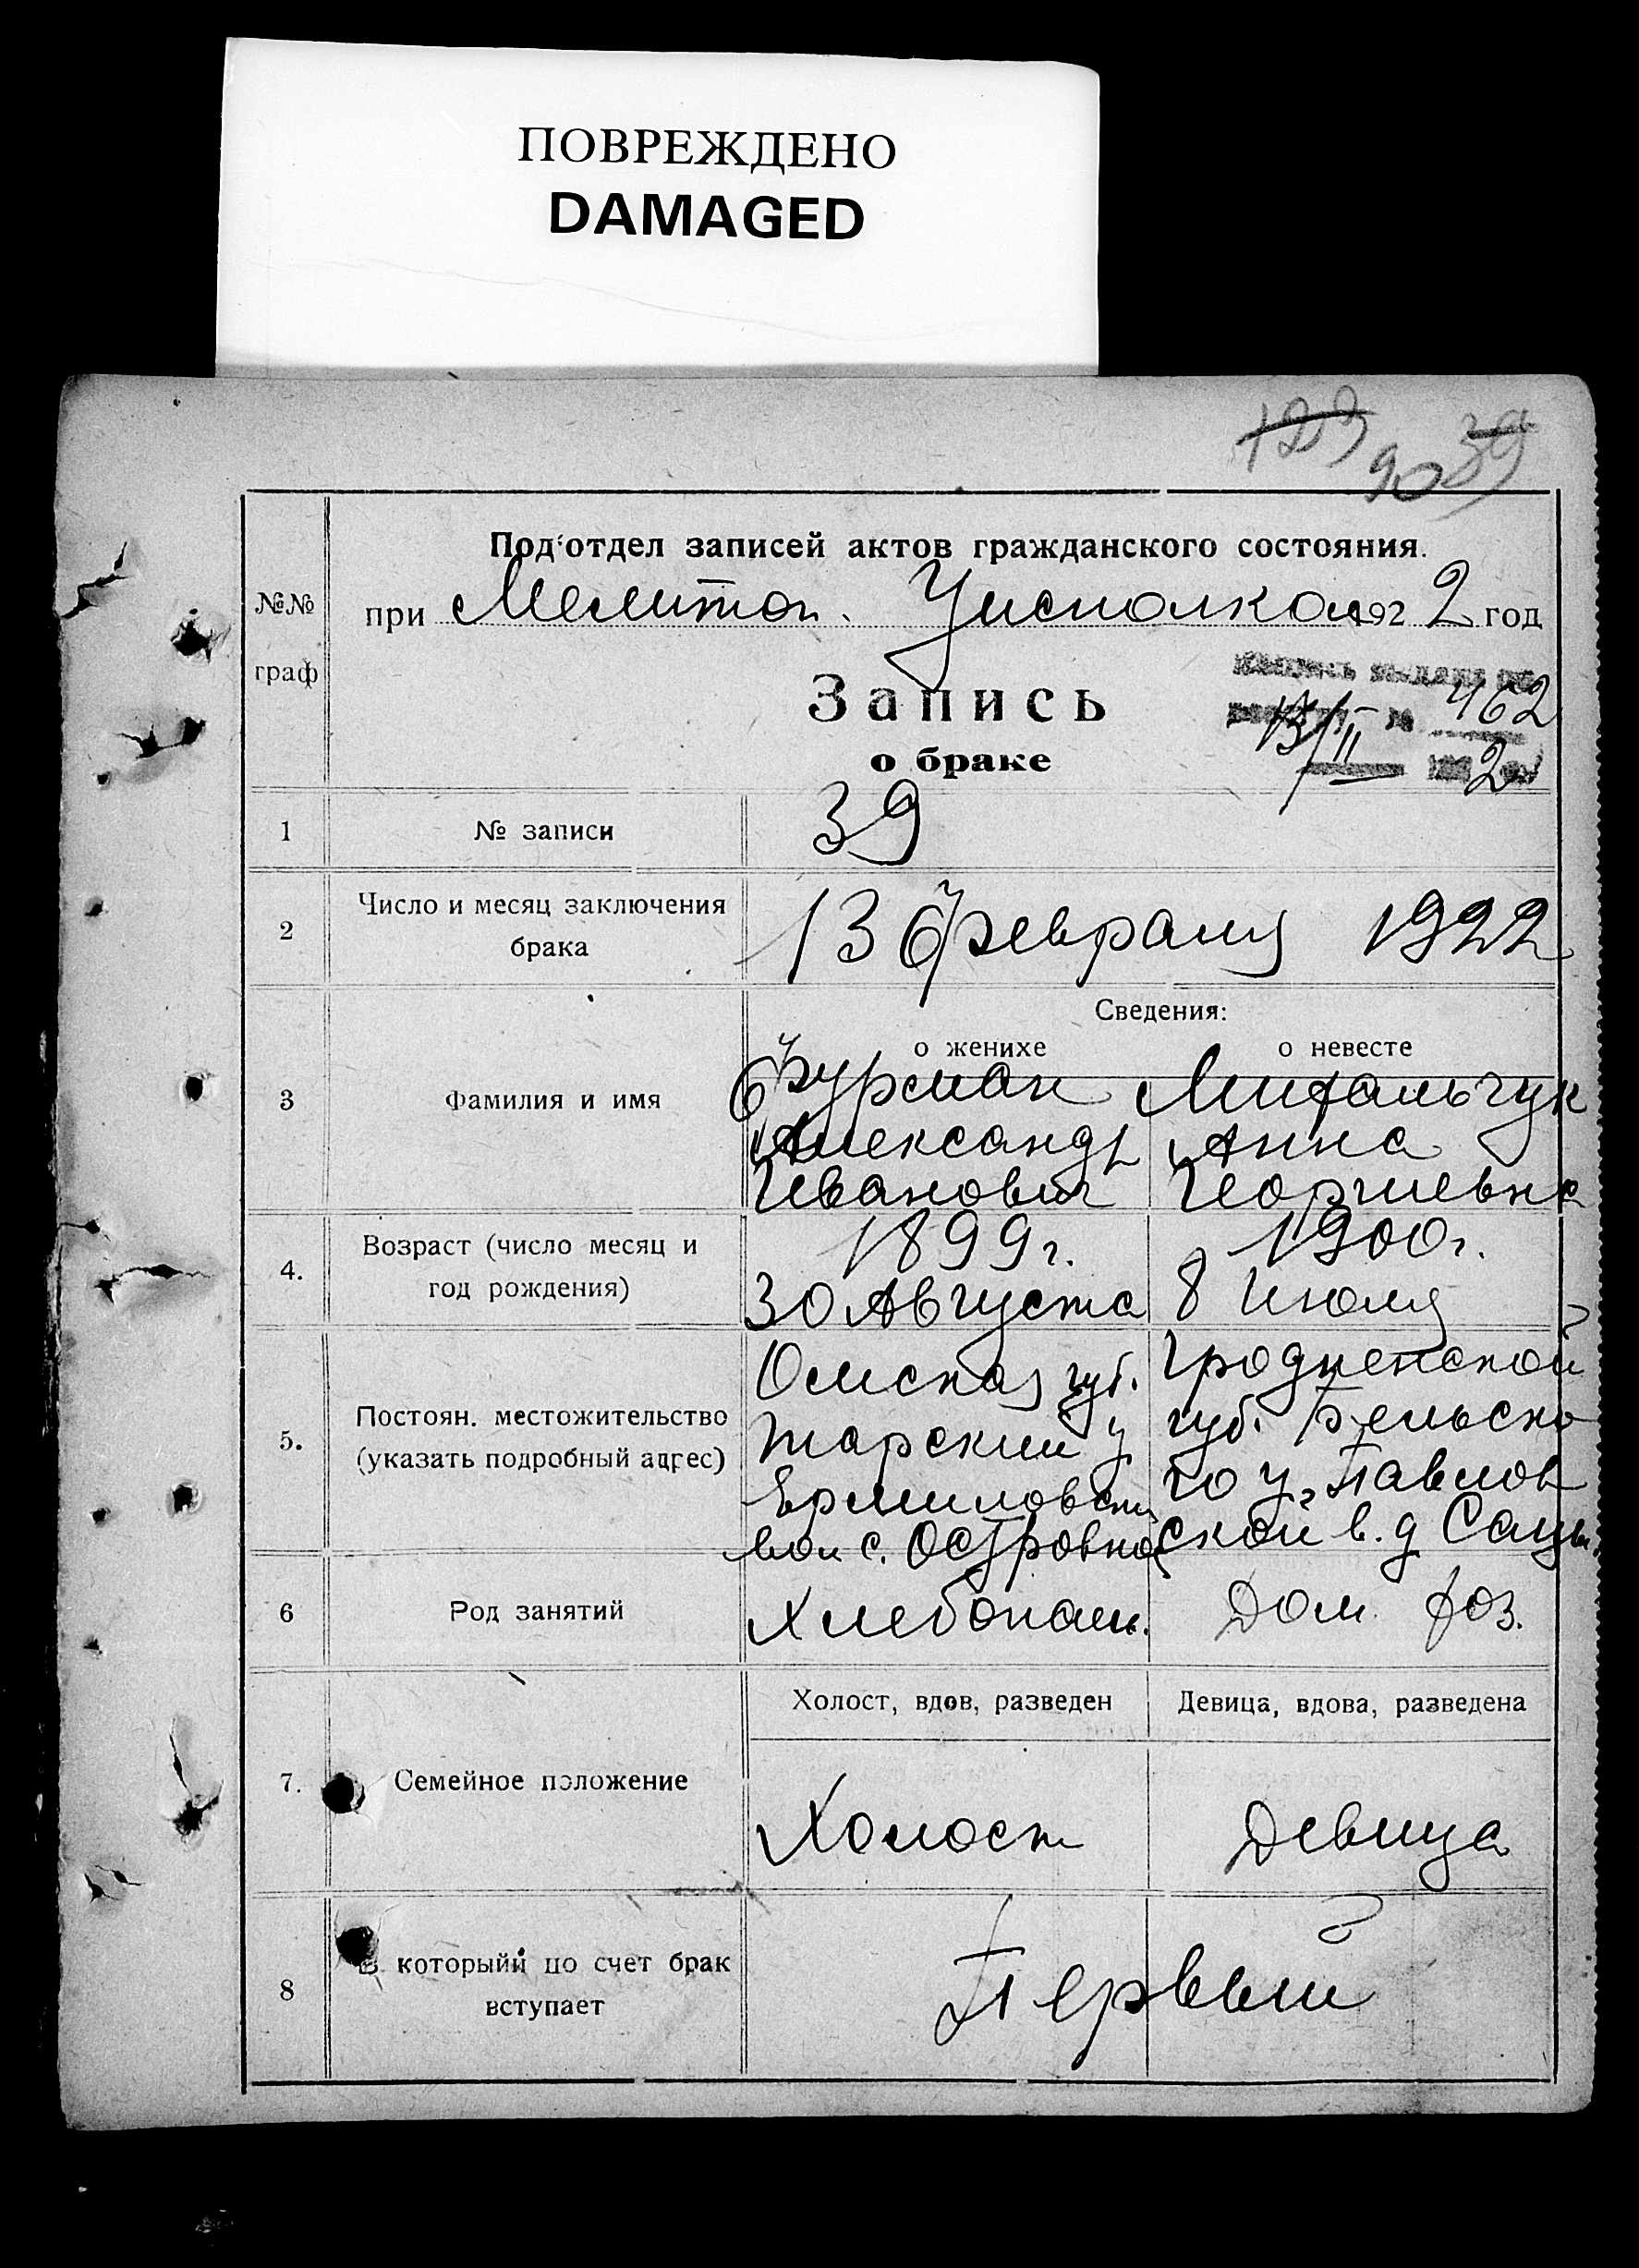 ПОВРЕЖДЕНО
DAMAGED
123 90 39
Под'отдел записей актов гражданского состояния.
№№ граф
при Мелитоп. Уисполком 1922 год
Запись
о браке
462
13/II 2
1 № записи 39
2 Число и месяц заключения брака 13 февраля 1922
Сведения:
о женихе о невесте
3 Фамилия и имя
Фурман Михальчук
Александр Анна
Иванович Георгиевна
4. Возраст (число месяц и год рождения)
1899 г. 1900 г.
30 Августа 8 Июля
5. Постоян. местожительство (указать подробный адрес)
Омская губ. Гродненской
Тарский у губ. Бельско
Ермиловск го у. Павлов
вол с. Островно ской в. д
6 Род занятий
Хлебопаш. Дом. хоз.
Холост, вдов, разведен Девица, вдова, разведена
7. Семейное положение
Холост Девица
8 В которыйй по счет брак вступает
Первый